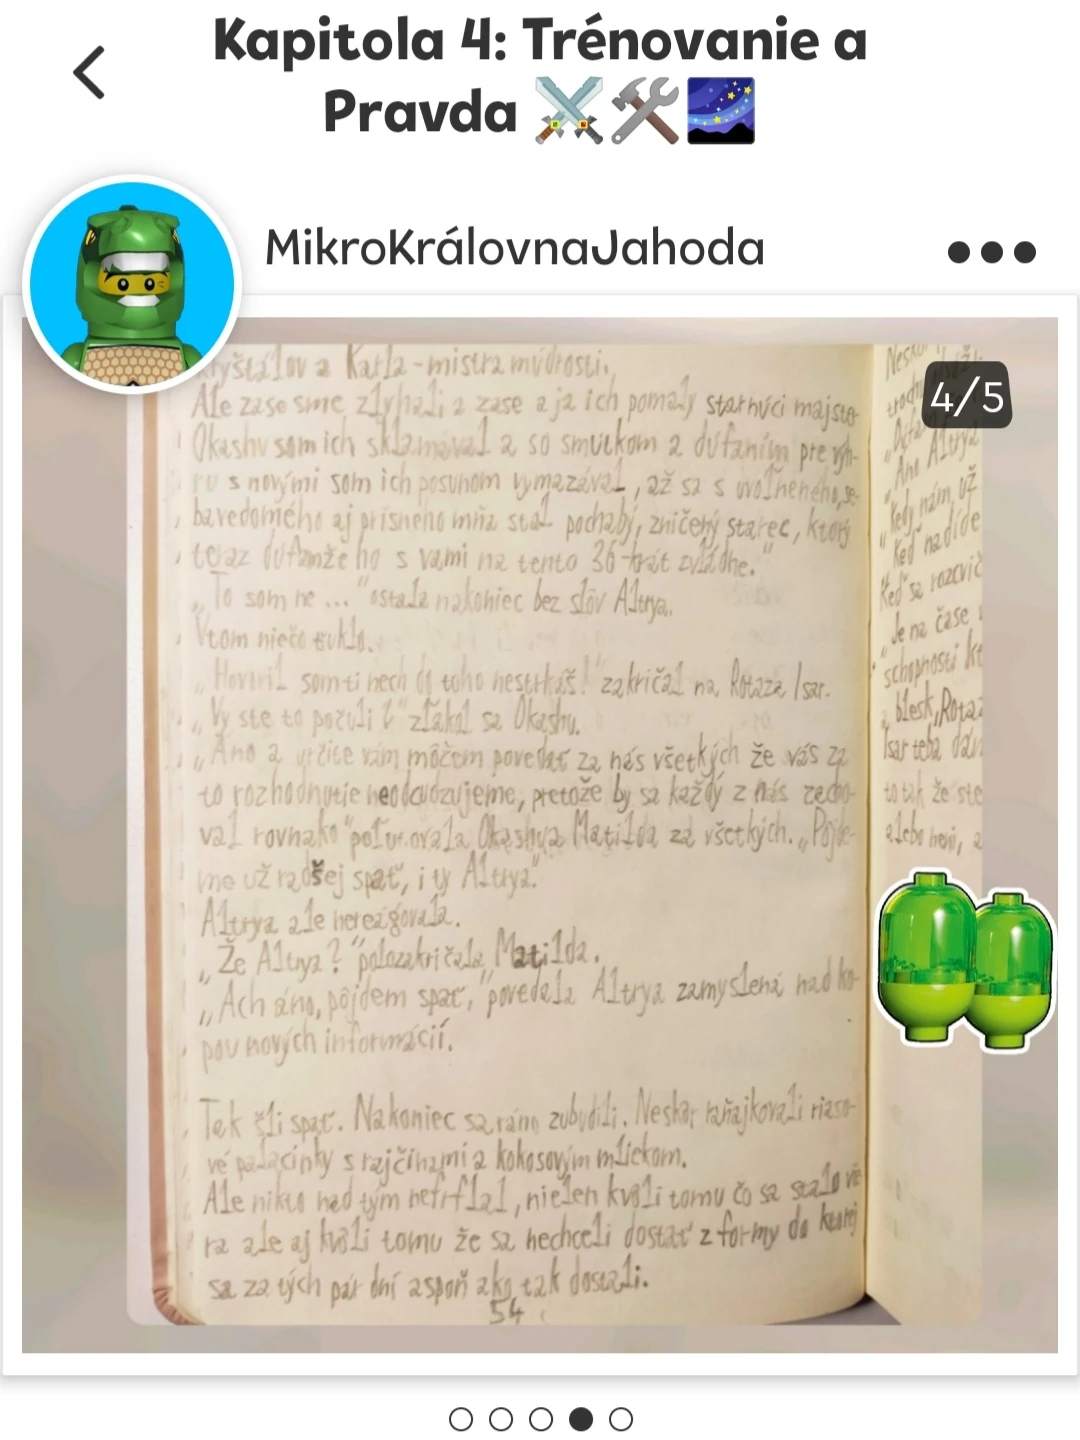 Kapitola 4: Trénovanie a
Pravda ⚔️🛠️🌌
MikroKrálovnaJahoda
4/5
kryštálov a Karla-mistra múdrosti.
Ale zase sme zlyhali a zase a ja ich pomaly starnúci majste-
Okashu som ich sklamával a so smútkom a dúfaním pre výh-
ru s novými som ich posunom vymazával, až sa s uvoľneného, se-
bavedomého aj prísneho mňa stal pochabý, zničený starec, ktorý
teraz dúfamže ho s vami na tento 36-krát zvládne."
„To som ne ..." ostala nakoniec bez slov Altrya.
Vtom niečo ťuklo.
„Hovoril som ti nech do toho nestrkáš!" zakričal na Rotaza Isar.
„Vy ste to počuli?" zľakol sa Okashu.
„Áno a určite vám môžem povedať za nás všetkých že vás za
to rozhodnutie neodcudzujeme, pretože by sa každý z nás zacho-
val rovnako" poľutovala Okashua Matilda za všetkých. „Pôjde-
me už radšej spať, i ty Altrya."
Altrya ale nereagovala.
„Že Altrya?" polozakričala Matilda.
„Ach áno, pôjdem spať," povedala Altrya zamyslená nad ko-
pou nových informácií.
Tak šli spať. Nakoniec sa ráno zobudili. Neskôr raňajkovali riaso-
vé palacinky s rajčinami a kokosovým mliekom.
Ale nikto nad tým nefrflal, nielen kvôli tomu čo sa stalo vče
ra ale aj kvôli tomu že sa nechceli dostať z formy do ktorej
sa za tých pár dní aspoň ako tak dostali.
54
Neskô
trochu
„Áno Altrya
„Kedy nám už
„Keď nadíde
Keď sa rozcvič
„Je na čase
schopnosti kt
a blesk, Rotaz
Isar teba dáv
to tak že ste
alebo není, a